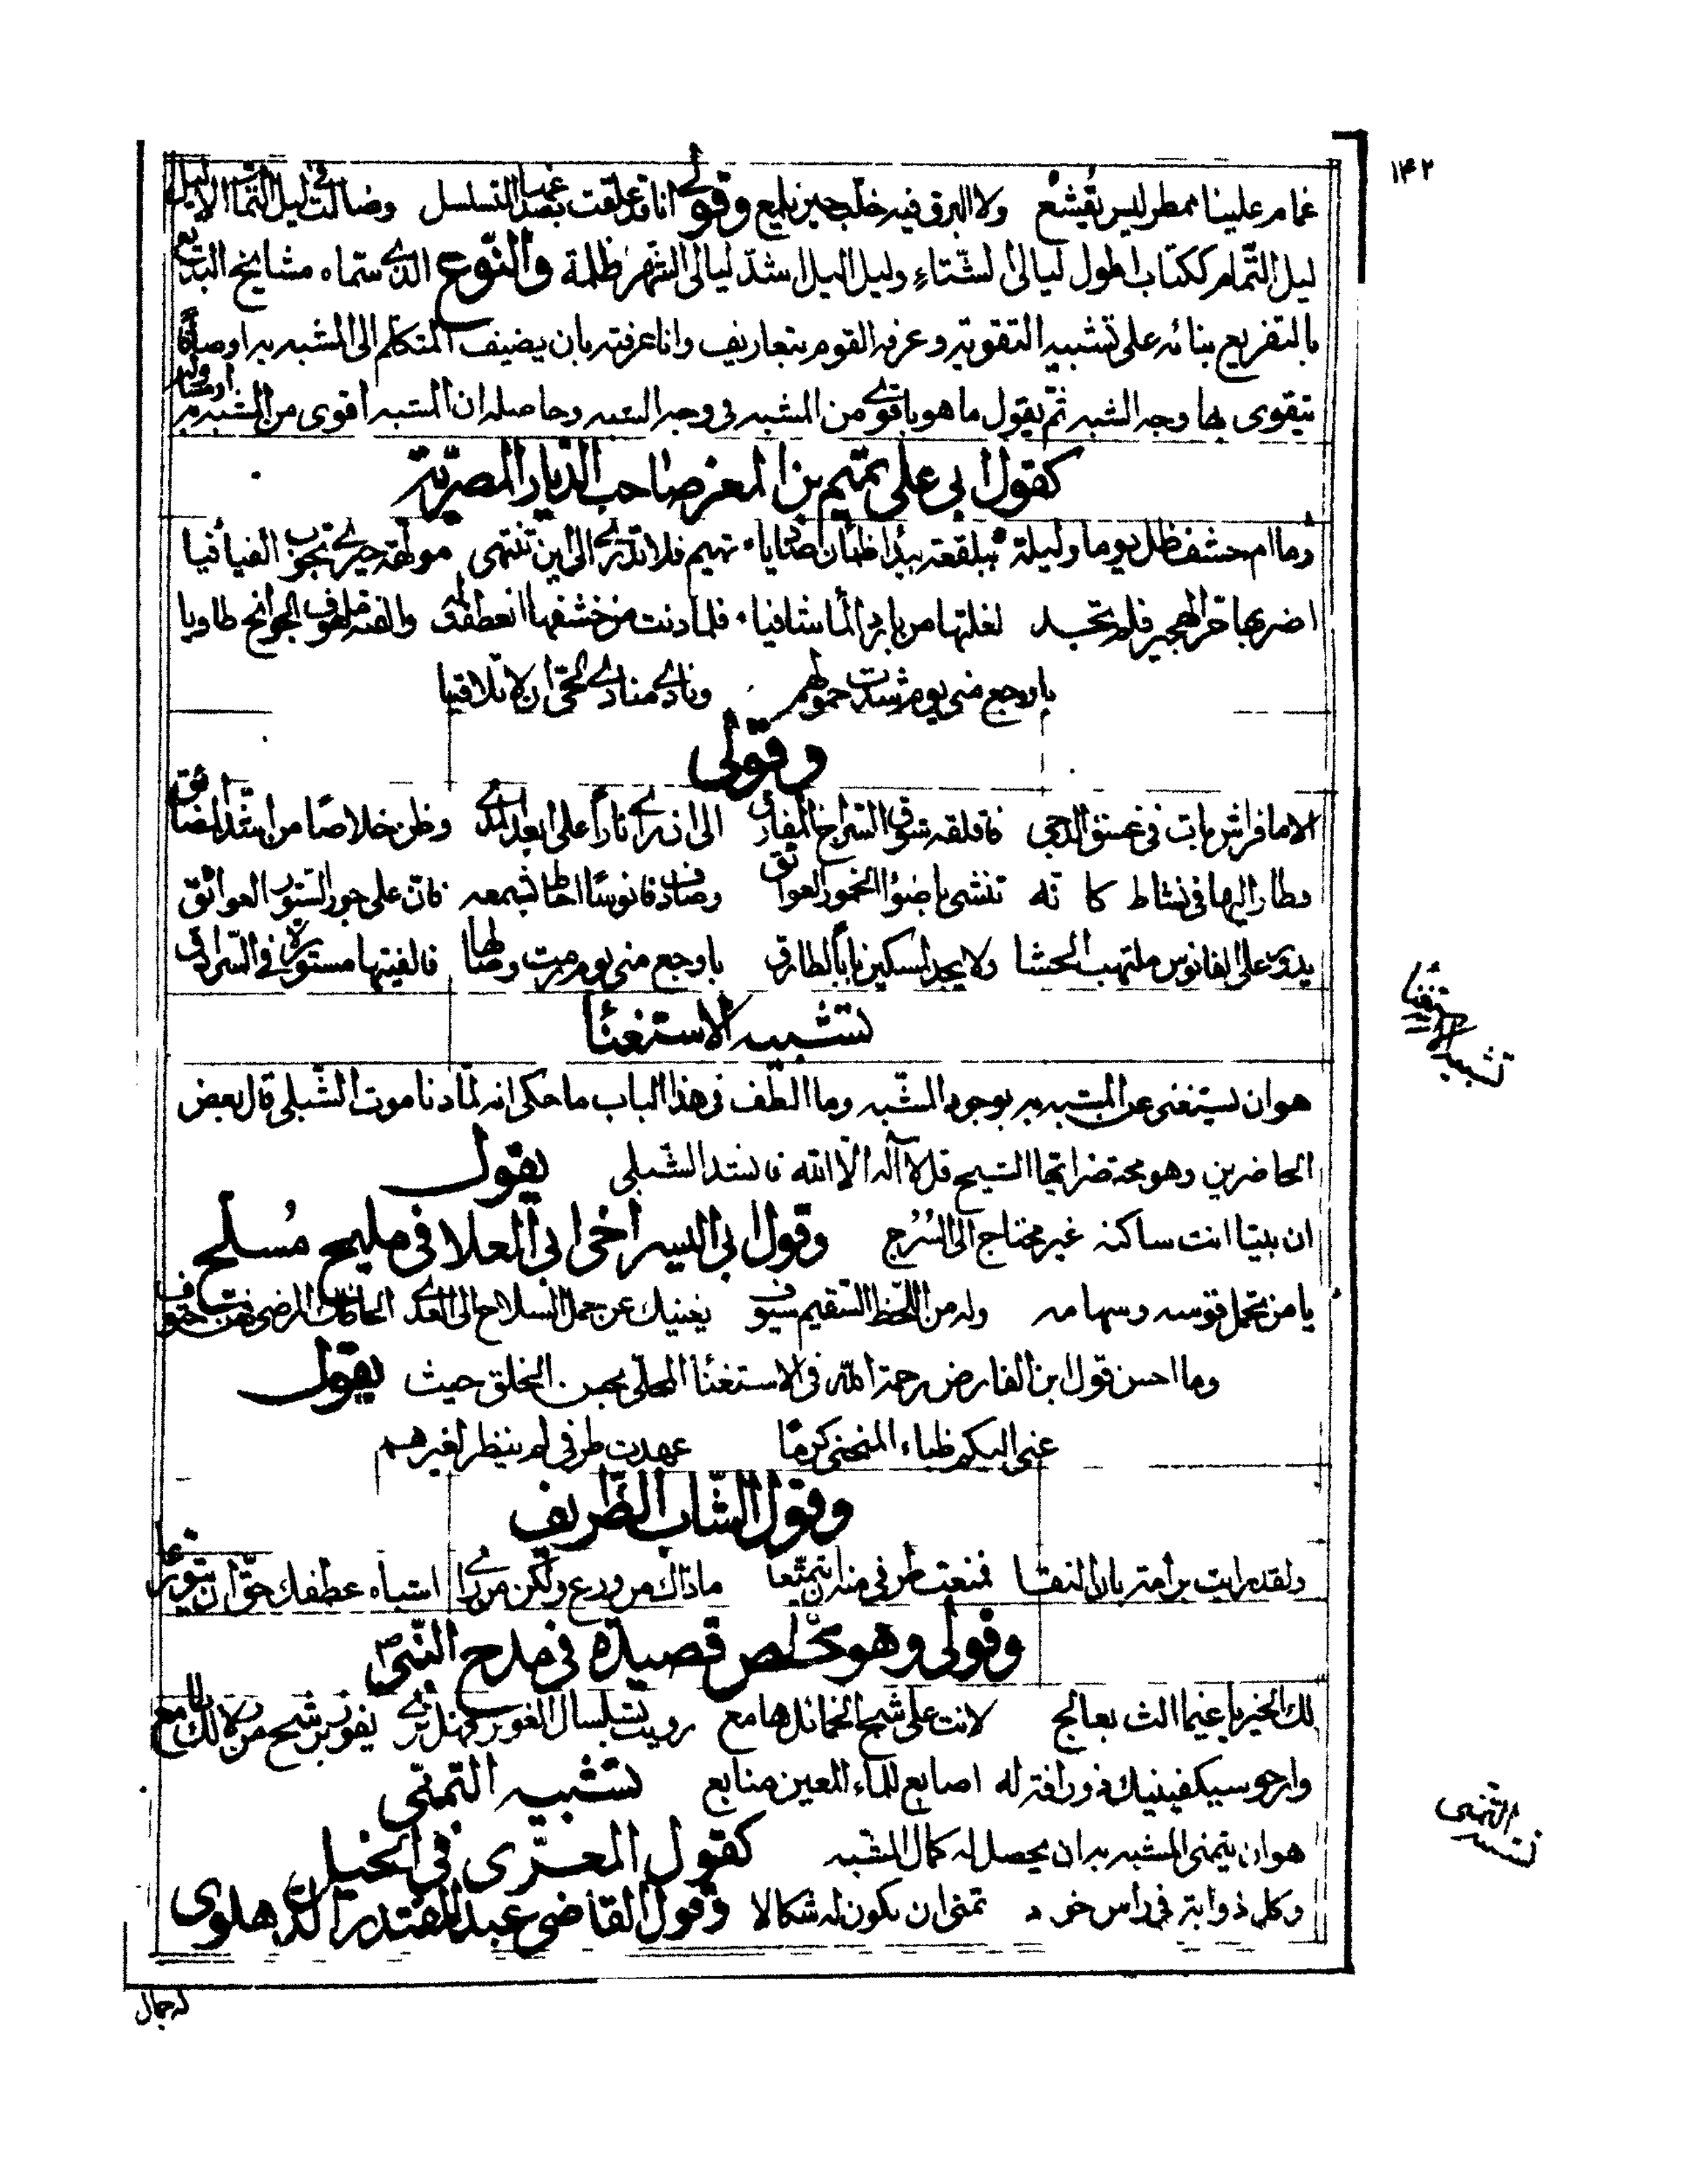 ١٤٢
غمام علينا ممطر ليس يقشع ولا البرق فيه خلب حين يلمع وقولي انا قد علقت بصد التسلسل وضالت في ليل التمام الاليل
ليل التمام ككتاب اطول ليالي الشتاء وليل اليل اشد ليالي الشهر ظلمة والنوع الذي ستماه مشايخ البديع
بالتفريع بنائه على تشبيه التقوية وعرفه القوم بتعاريف وانا عرفته بان يضيف المتكلم الى المشبه به اوصافا
يتقوى بها وجه الشبه ثم يقول ما هو باقوى من المشبه في وجه الشبه وحاصله ان المشبه اقوى من المشبه به
كقول ابي علي تميم بن المعز صاحب الديار المصرية
وما ام خشف ظل يوما وليلة ببلقعة بيداء ظمآن صاديا تهيم فلا تدري الى اين تنتهي مولهة حيرى تجوب الفيافيا
اضر بها حر الهجير فلم تجد لغلتها من بارد الماء شافيا فلما دنت من خشفها انعطفت له والفته ملهوف الجوانح طاويا
باوجع مني يوم شدت حمولهم ونادى منادي الحي ان لا تلاقيا
وقولي
الا ما فراش بات في غسق الدجى فاقلقه شوق السراج المفارق الى ان راى نارا على ابعد المدى وظن خلاصا من اشد المضائق
وطار اليها في نشاط كانه تنشى باضواء الخمور العوائق وصادف فانوسا احاط بشمعه فان على جور الستور العوائق
يدور على الفانوس ملتهب الحشا ولا يجد المسكين بابا لطارق باوجع مني يوم رمت وصالها فالفيتها مستورة في السرادق
تشبيه الاستغنأ
تشبيه الاستغنا
هو ان يستغنى عن المشبه به بوجود المشبه وما الطف في هذا الباب ما حكى انه لما دنا موت الشبلي قال بعض
الحاضرين وهو محتضر ايها الشيخ قل لا آله الا الله فانشد الشبلي يقول
ان بيتا انت ساكنه غير محتاج الى السرج وقول ابي اليسر اخي ابي العلا في مليح مسلح
يا من تحمل قوسه وسهامه وله من اللحظ السقيم سيوف يغنيك عن حمل السلاح الى العدى
وما احسن قول ابن الفارض رحمة الله في الاستغنأ المحلى بحسن التخلق حيث يقول
عني اليكم ظباء المنحنى كرما عهدت طرفي لم ينظر لغيرهم
وقول الشاب الظريف
ولقد رايت برامة بان النقا فمنعت طرفي منه ان يتمتعا ما ذاك من ورع ولكن من راى اشباه عطفك حق ان يتورعا
وقولي وهو تخلص قصيدة في مدح النبي ص
لك الخير يا غيما الث بعالج لانت على شيح الخمائل هامع
وارجو سيكفينيك ذو رافة له اصابع للماء المعين منابع تشبيه التمني
تشبيه التمني
هو ان يتمنى المشبه به ان يحصل له كمال المشبه كقول المعري في الخيل
وكل ذوابة في راس خود تمنى ان يكون له شكالا وقول القاضي عبد المقتدر الدهلوي
له جمال